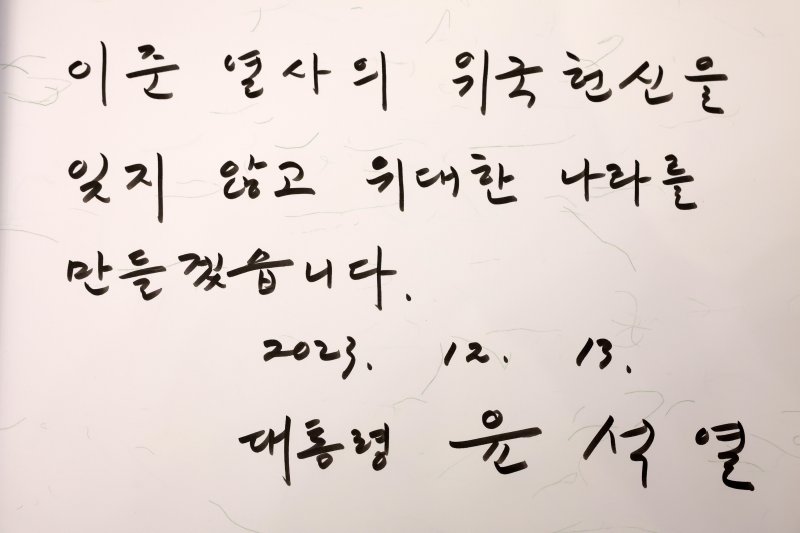 이준 열사의 위국헌신을
잊지 않고 위대한 나라를
만들겠읍니다.
2023. 12. 13.
대통령 윤석열